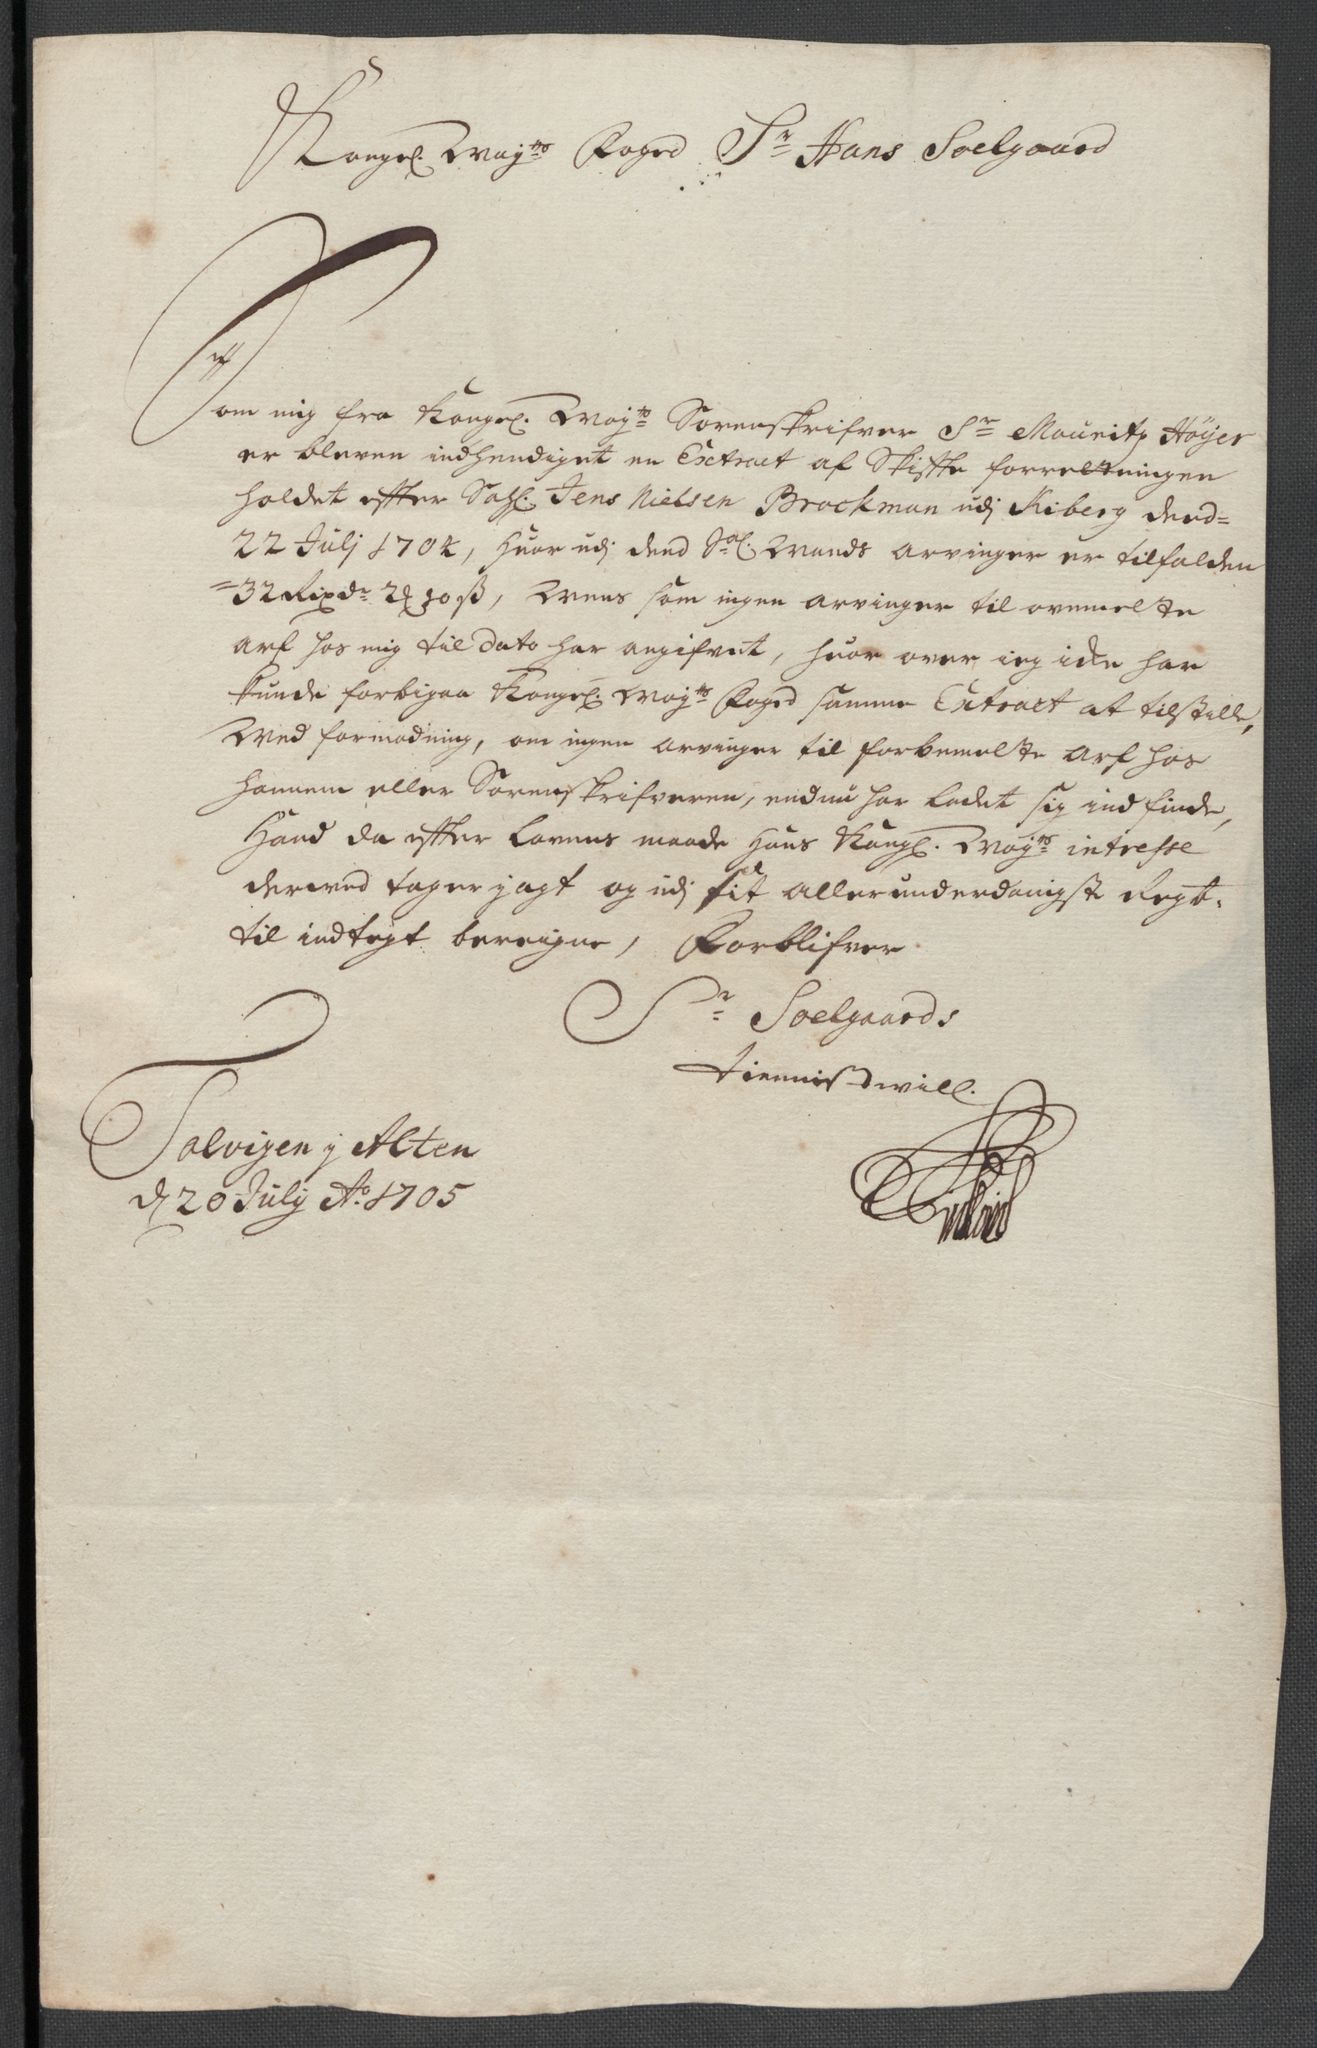 Kongel. May.ts Foged Sr Hans Soelgaard
Eff
om mig fra Kongel. May.ts Sorenskrifver Sr Mauritz Høyer
er bleven indhendiget en Extract af Skifte forretningen
holdet effter Sahl. Jens Nielsen Brockman udj Kiberg dend=
22 Julj 1704, Huor udj dend Sal. Mands arvinger er tilfalden
=32 Rixdr 2 ꝶ 10 ß, Mens som ingen arvinger til ovenmelte
arf hos mig til dato har angifvet, huor over ieg icke har
kunde forbigaa Kongel. May.ts Foged samme Extract at tilstille,
Med formodning, om ingen arvinger til forbemelte arf hos
hannem eller Sorenskrifveren, endnu har ladet sig indfinde,
Hand da effter lovens maade Hans Kongl. May.ts intresse
derved tager j agt og udj sit allerunderdanigste Regb.
til indtegt bereigne, Forblifver
Sr Soelgaards
tiennistvill.
Talvigen j Alten
d 20 July Ao 1705